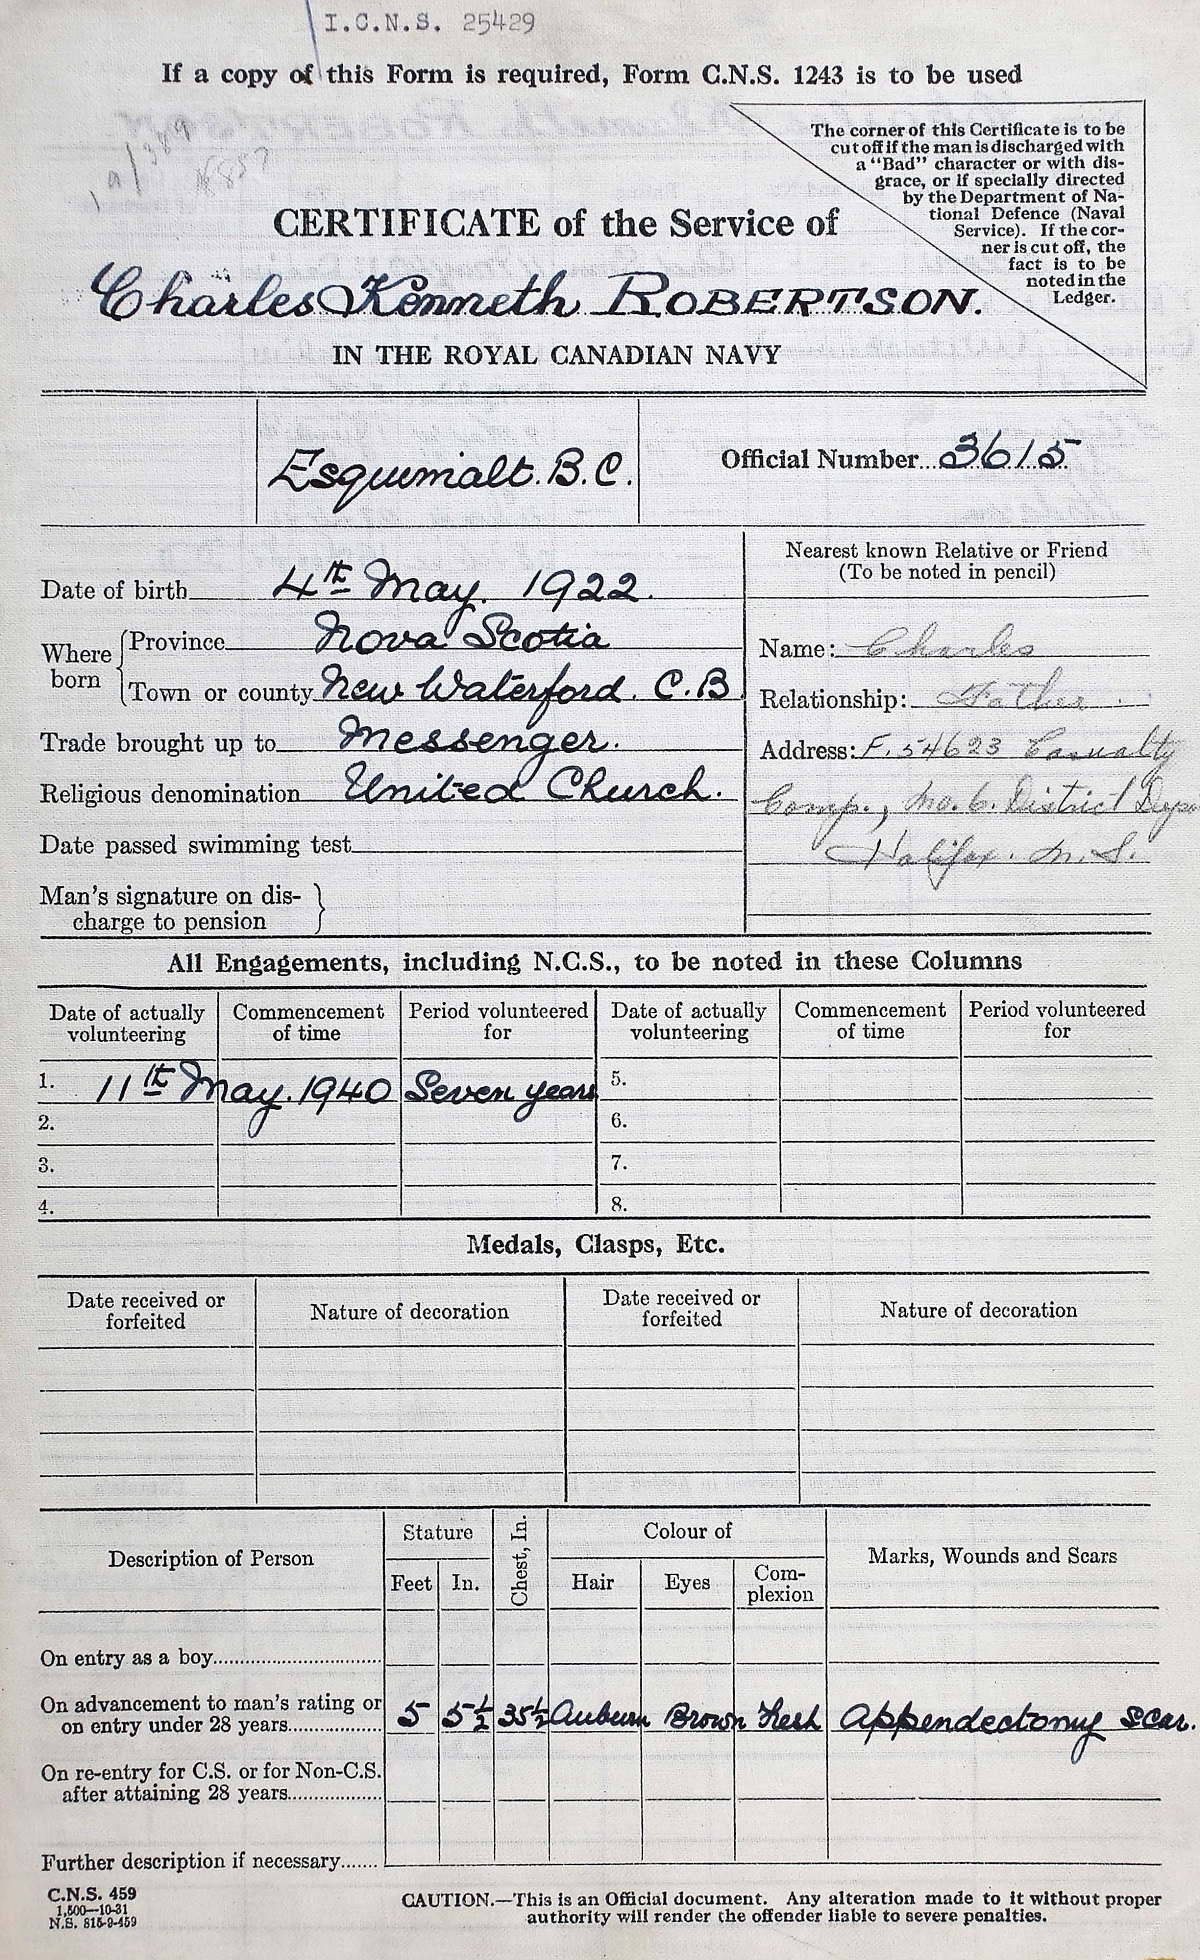 I.C.N.S. 25429
If a copy of this Form is required, Form C.N.S. 1243 is to be used
The corner of this Certificate is to be
cut off if the man is discharged with
a "Bad" character or with dis-
grace, or if specially directed
by the Department of Na-
tional Defence (Naval
Service). If the cor-
ner is cut off, the
fact is to be
noted in the
Ledger.
CERTIFICATE of the Service of
Charles Kenneth ROBERTSON.
IN THE ROYAL CANADIAN NAVY
Esquimalt. B.C.
Official Number 3615
Date of birth 4th May. 1922.
Where born
Province Nova Scotia
Town or county New Waterford. C.B.
Trade brought up to Messenger.
Religious denomination United Church.
Date passed swimming test
Man's signature on dis-
charge to pension
Nearest known Relative or Friend
(To be noted in pencil)
Name: Charles
Relationship: Father
Address: F.54623 Casualty
Comp., No. 6. District Depo
Halifax. N.S.
All Engagements, including N.C.S., to be noted in these Columns
Date of actually volunteering Commencement of time Period volunteered for Date of actually volunteering Commencement of time Period volunteered for
1. 11th May. 1940 Seven years 5.
2. 6.
3. 7.
4. 8.
Medals, Clasps, Etc.
Date received or forfeited Nature of decoration Date received or forfeited Nature of decoration
Description of Person Stature Chest, In. Colour of Marks, Wounds and Scars
Feet In. Hair Eyes Com-plexion
On entry as a boy
On advancement to man's rating or
on entry under 28 years 5 5½ 35½ Auburn Brown Fresh Appendectomy scar.
On re-entry for C.S. or for Non-C.S.
after attaining 28 years
Further description if necessary
C.N.S. 459
1,500—10-31
N.S. 815-9-459
CAUTION.—This is an Official document. Any alteration made to it without proper
authority will render the offender liable to severe penalties.